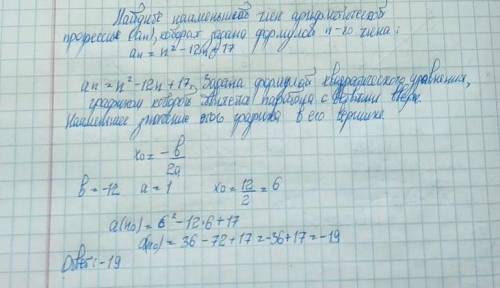 Найдите наименьший член арифметической
прогрессии (an), которая задана формулой n-го члена:
an = n² - 12n + 17
an = n² - 12n + 17, Задана формулой квадратического уравнения,
графиком которой является парабола с ветвями вверх.
Наименьшее значение этого графика в его вершине.
x₀ = -в/2a
в = -12 a = 1 x₀ = 12/2 = 6
a(n₀) = 6² - 12·6 + 17
a(n₀) = 36 - 72 + 17 = -36 + 17 = -19
Ответ: -19